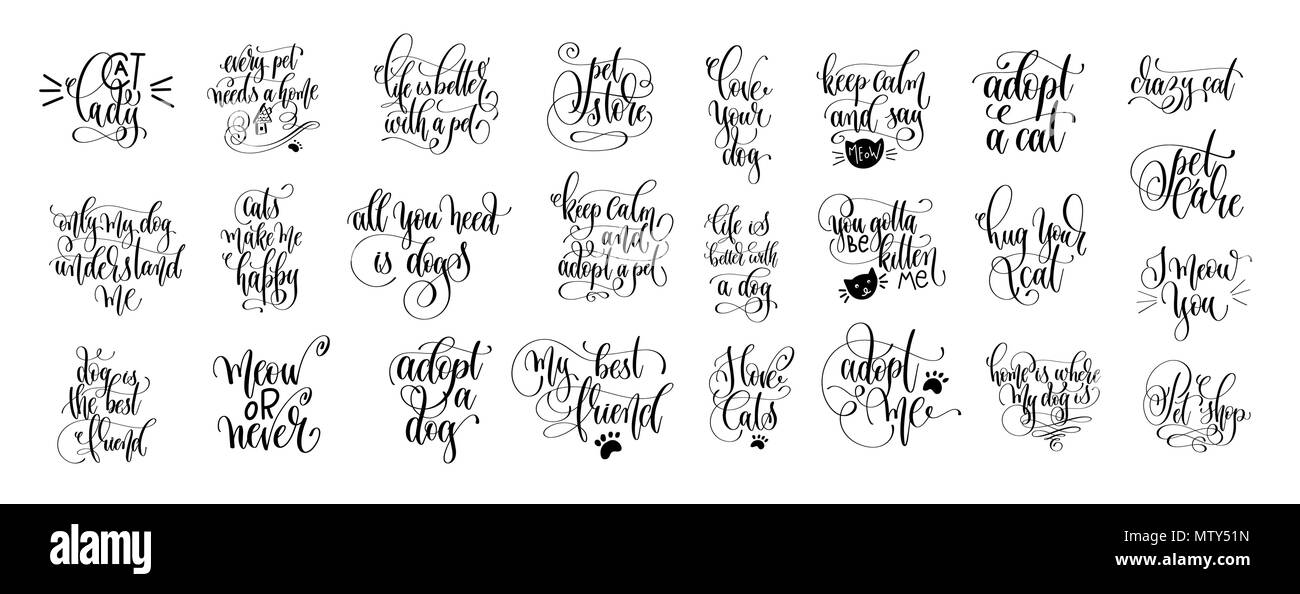 CAT
Lady
every pet
needs a home
life is better
with a pet
pet
store
love
your
dog
keep calm
and say
MEOW
adopt
a cat
crazy cat
pet
care
only my dog
understand
me
cats
make me
happy
all you need
is dogs
keep calm
and
adopt a pet
life is
better with
a dog
you gotta
BE
kitten
ME!
hug your
cat
I meow
you
dog is
the best
friend
Meow
OR
never
adopt
a
dog
my best
friend
I love
cats
adopt
me
home is where
my dog is
Pet shop
alamy
alamy
Image ID: MTY51N
www.alamy.com